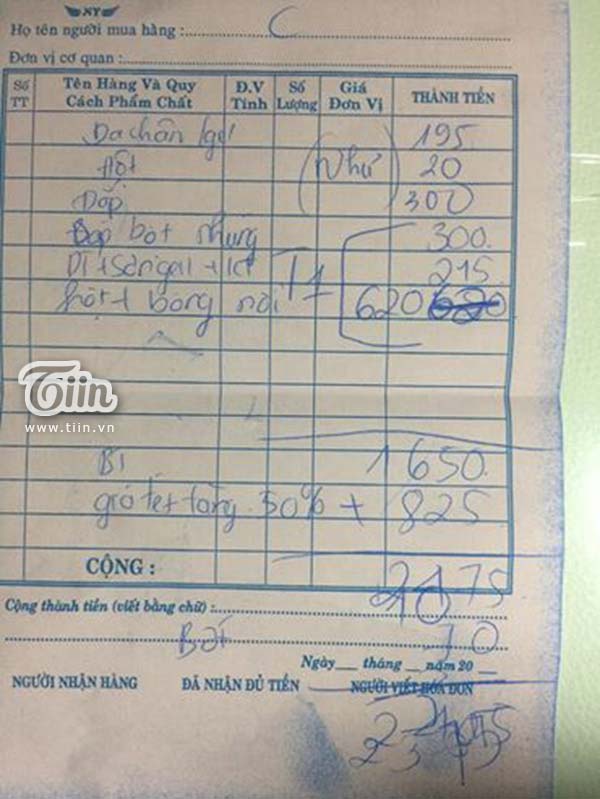 NY
Họ tên người mua hàng : C
Đơn vị cơ quan :
Số TT Tên Hàng Và Quy Cách Phẩm Chất Đ.V Tính Số Lượng Giá Đơn Vị THÀNH TIỀN
Da chân gel 195
hột (Như) 20
Đắp 300
Đắp bột nhúng 300.
215
hột + bông nổi T1 620
Tiin
www.tiin.vn
1650.
giá tết tăng 50% + 825
CỘNG : 2475
Cộng thành tiền (viết bằng chữ) :
Bớt 70
Ngày___ tháng ___ năm 20 __
NGƯỜI NHẬN HÀNG ĐÃ NHẬN ĐỦ TIỀN NGƯỜI VIẾT HÓA ĐƠN